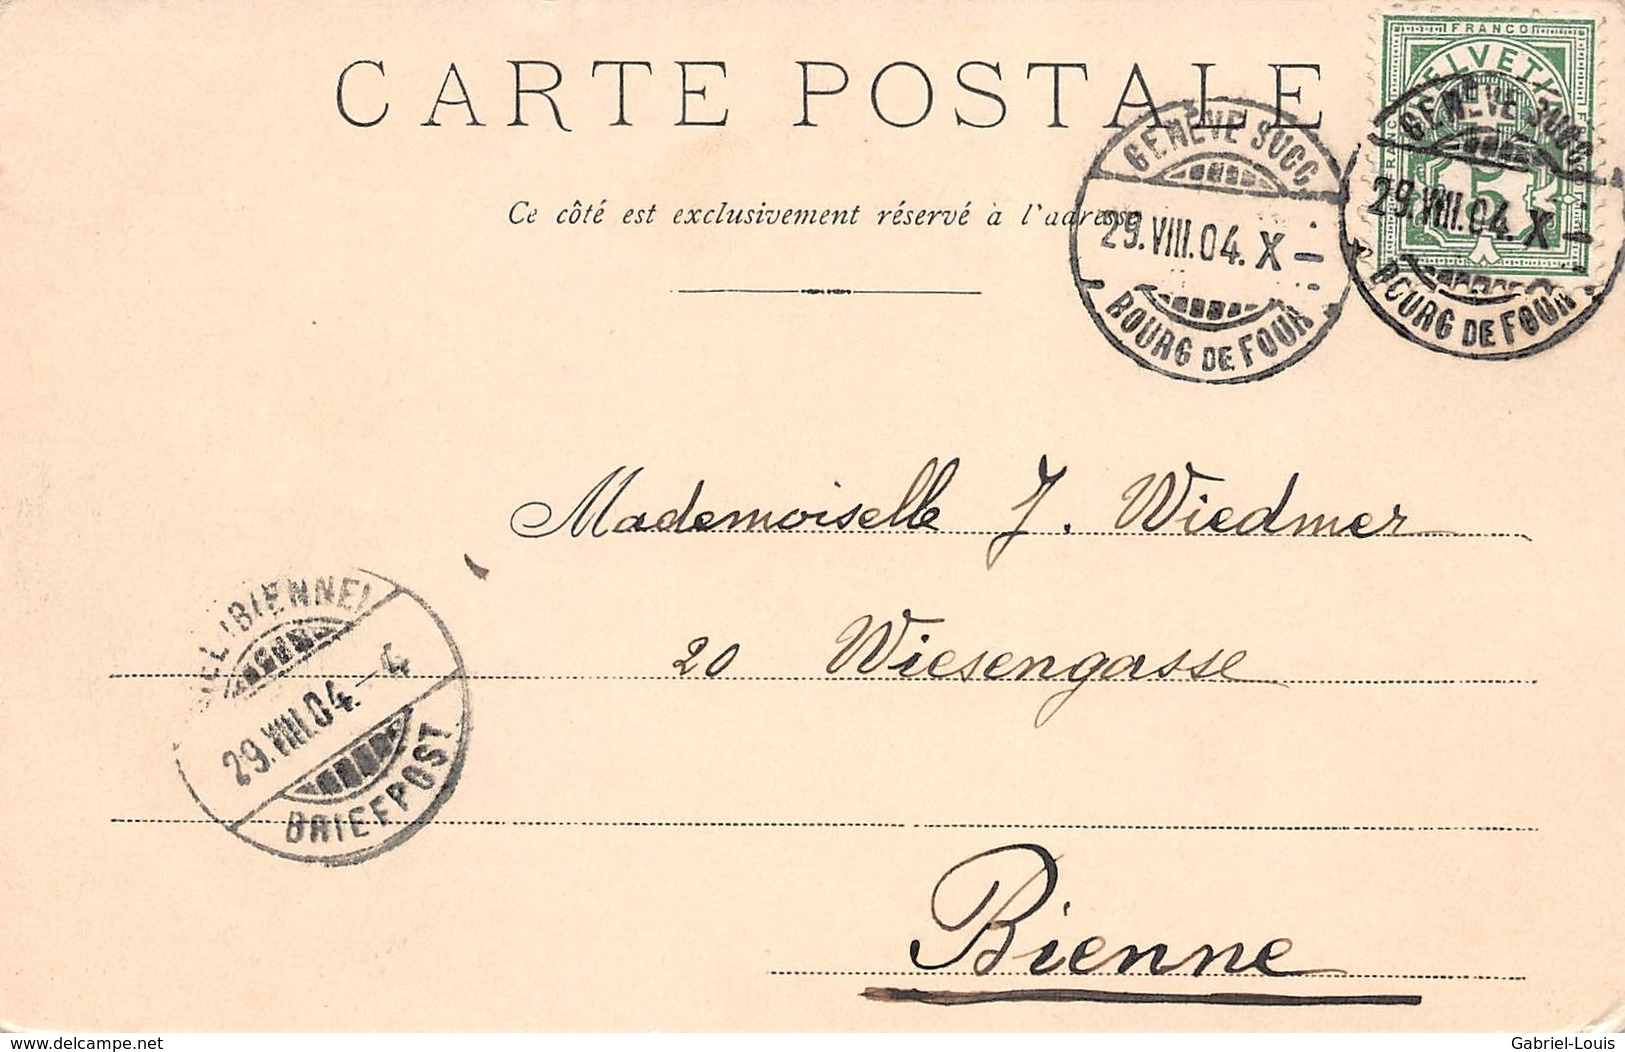 CARTE POSTALE
Ce côté est exclusivement réservé à l'adresse
FRANCO
HELVETIA
5
GENÈVE SUCC.
29.VIII.04. X
BOURG DE FOUR
GENÈVE SUCC.
29.VIII.04. X
BOURG DE FOUR
Mademoiselle J. Wiedmer
20 Wiesengasse
Bienne
BIEL (BIENNE)
29.VIII.04. 4
BRIEFPOST
www.delcampe.net
Gabriel-Louis